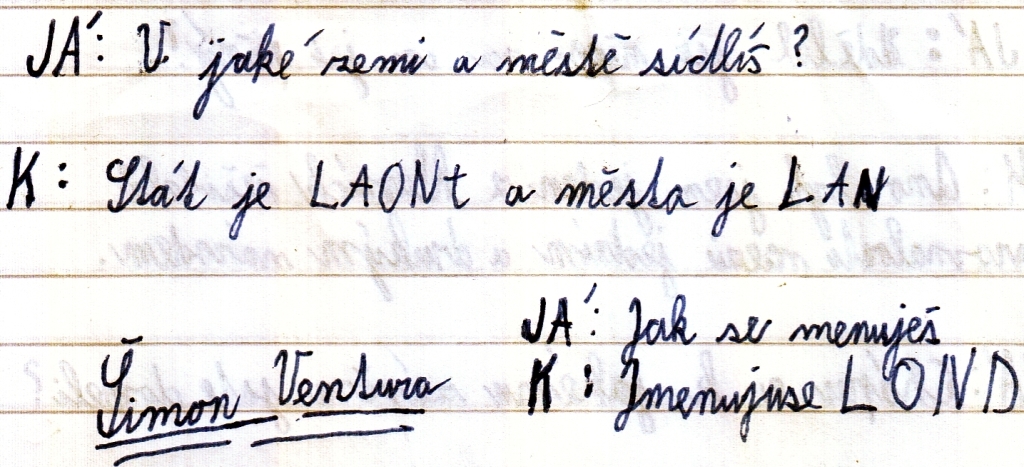 JÁ: V jaké zemi a městě sídlíš?
K: Stát je LAONt a města je LAN
JÁ: Jak se menuješ
K: Jmenujuse LOND
Šimon Ventura